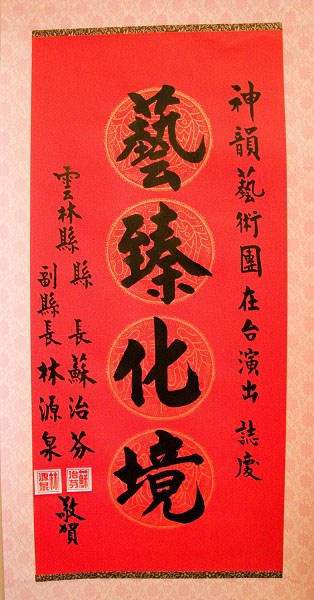 神韻藝術團在台演出 誌慶
藝臻化境
雲林縣 縣長 蘇治芬
副縣長 林源泉
敬賀
蘇治芬
林源泉